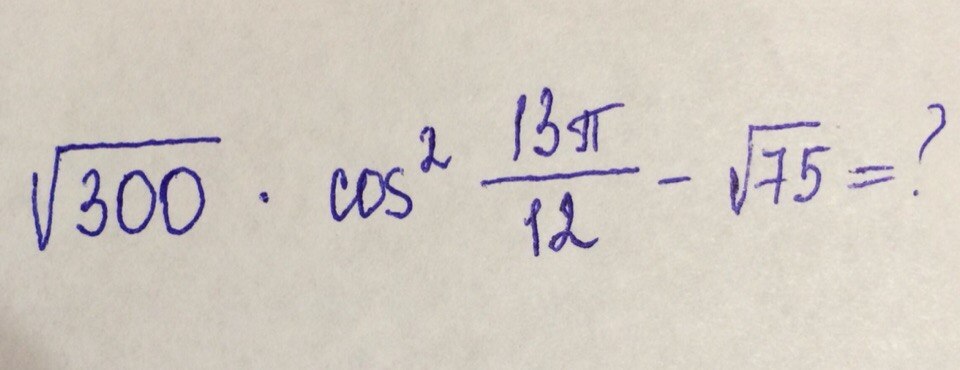 √300 · cos² 13π/12 - √75 = ?